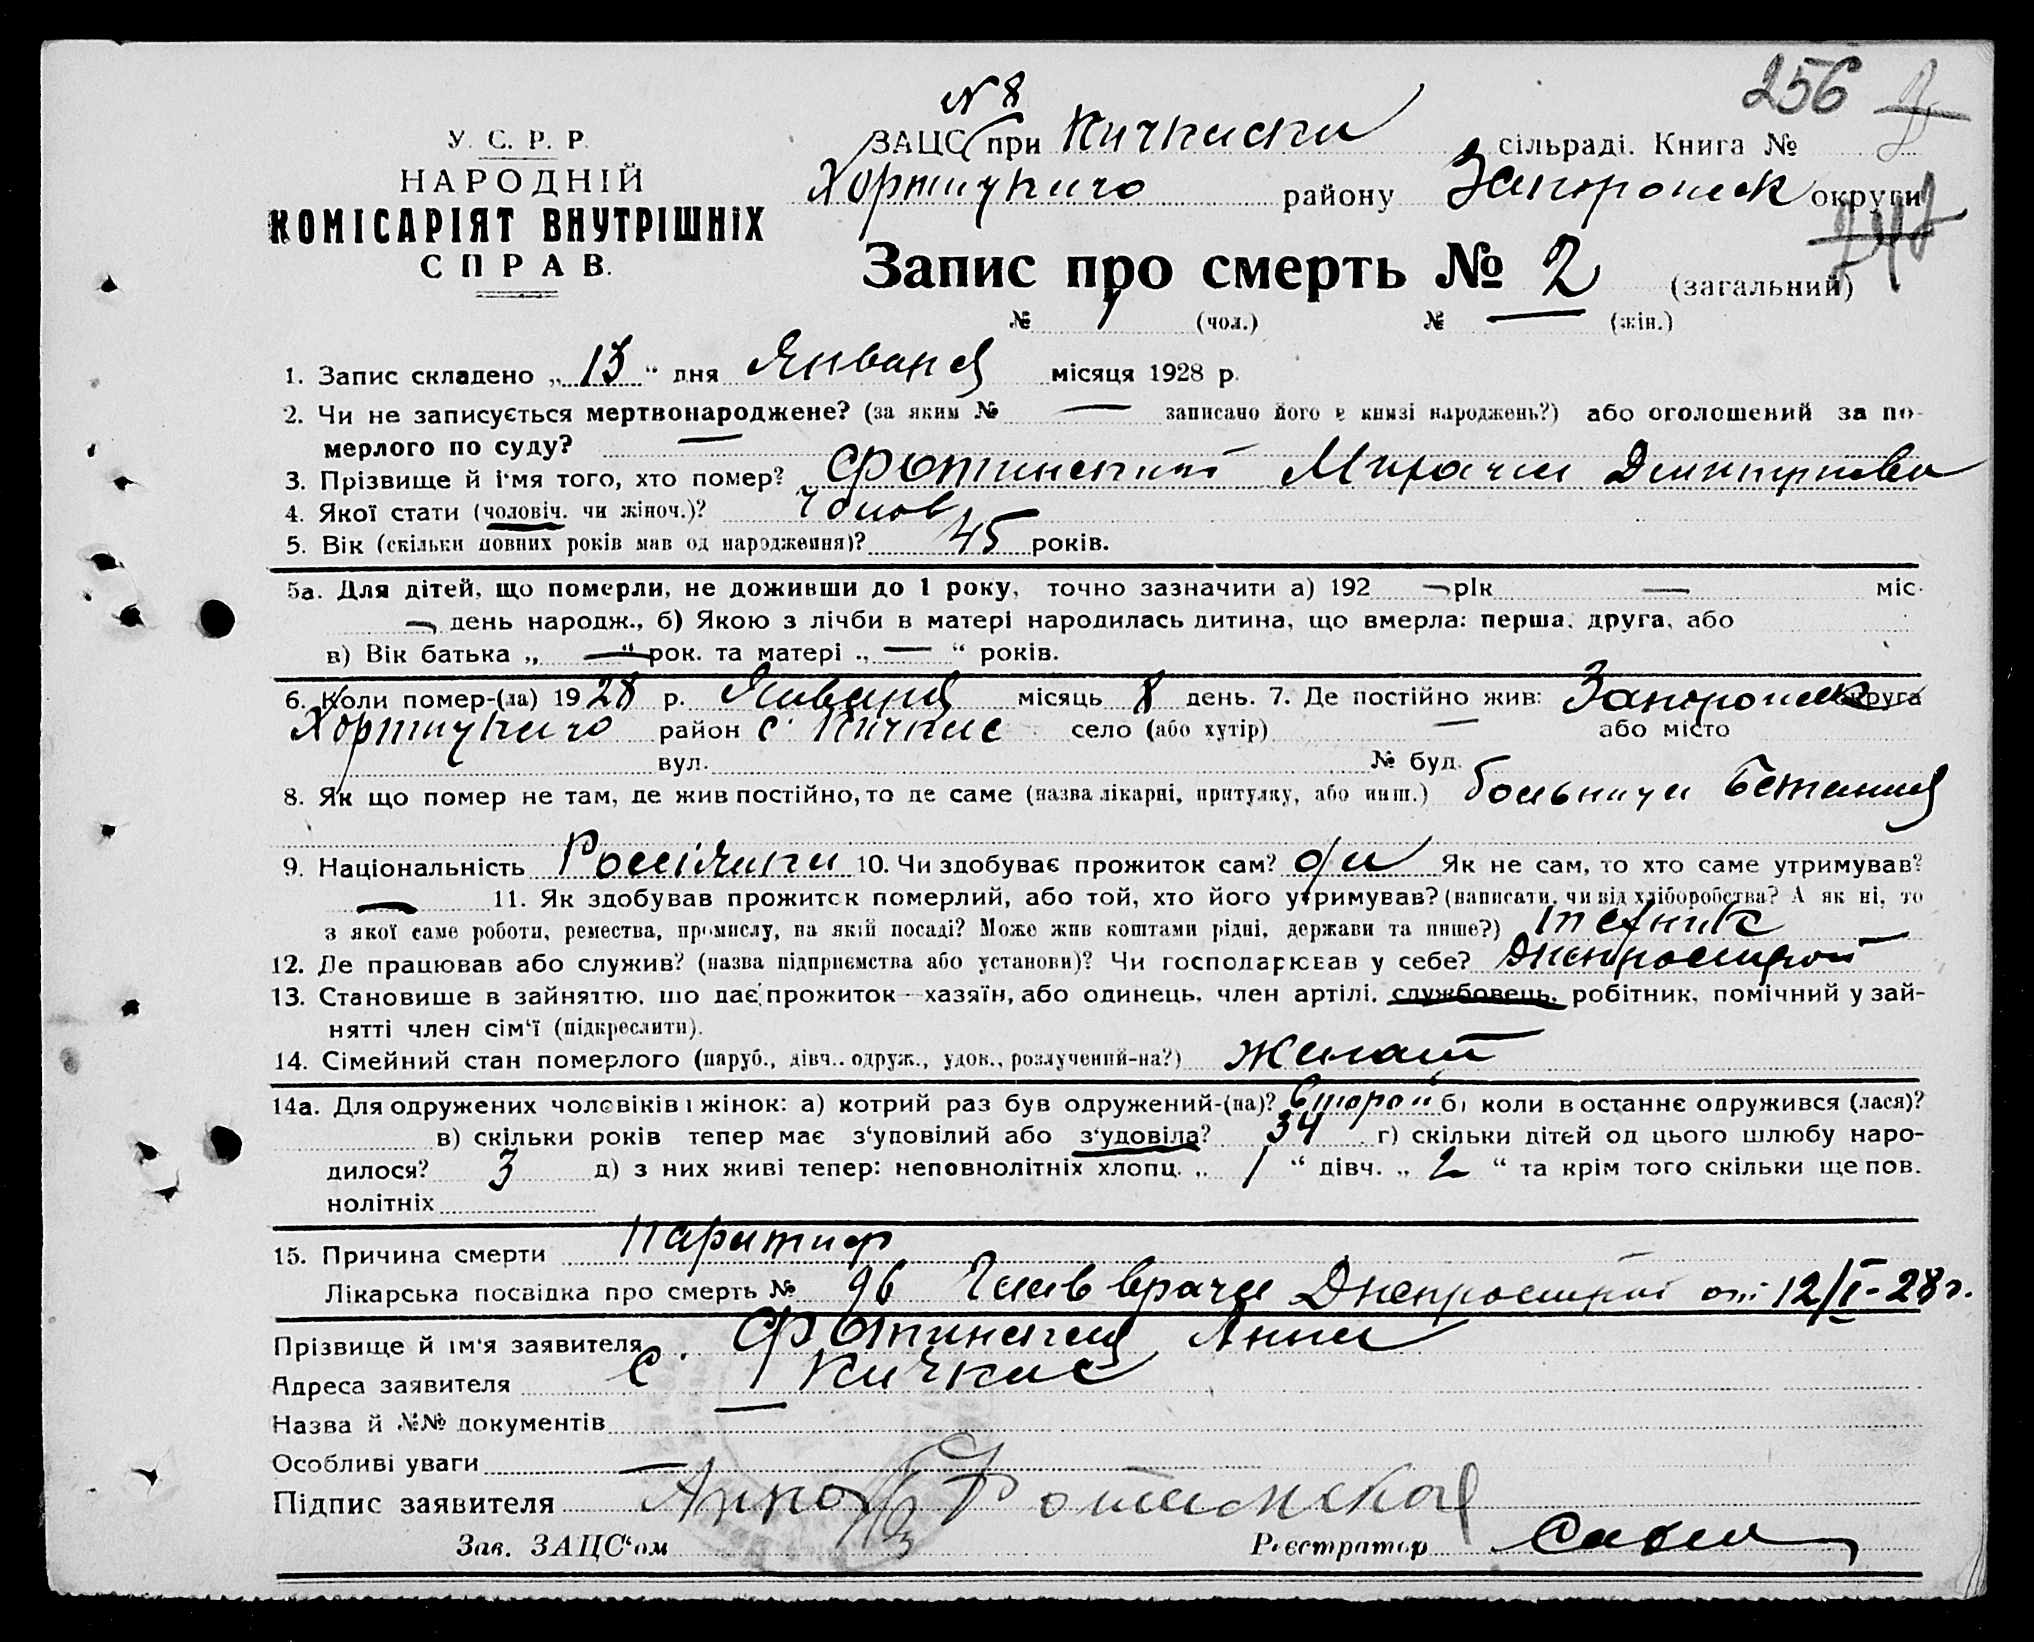 256
N 8
У. С. Р. Р.
НАРОДНІЙ
КОМІСАРІЯТ ВНУТРІШНІХ
СПРАВ.
ЗАЦС при Кичкаски сільраді. Книга №
Хортицкого району Запорожск округи
Запис про смерть № 2 (загальний)
№ 1 (чол.) № — (жін.)
1. Запис складено „ 13 “ дня Января місяця 1928 р.
2. Чи не записується мертвонароджене? (за яким № — записано його в книзі народжень?) або оголошений за по-
мерлого по суду? —
3. Прізвище й ім'я того, хто помер? Фотинский Дмитриев
4. Якої стати (чоловіч. чи жіноч.)? Чолов
5. Вік (скільки повних років мав од народження)? 45 років.
5а. Для дітей, що померли, не доживши до 1 року, точно зазначити а) 192 — рік — міс.
— день народж., б) Якою з лічби в матері народилась дитина, що вмерла: перша, друга, або
в) Вік батька „ — “ рок. та матері „ — “ років.
6. Коли помер-(ла) 1928 р. Января місяць 8 день. 7. Де постійно жив: Запорожск округа
Хортицкого район с. Кичкас село (або хутір) — або місто
вул. № буд.
8. Як що помер не там, де жив постійно, то де саме (назва лікарні, притулку, або инш.) больница Бетания
9. Національність 10. Чи здобуває прожиток сам? Як не сам, то хто саме утримував?
— 11. Як здобував прожиток померлий, або той, хто його утримував? (написати, чи від хліборобства? А як ні, то
з якої саме роботи, ремества, промислу, на якій посаді? Може жив коштами рідні, держави та инше?) техник
12. Де працював або служив? (назва підприємства або установи)? Чи господарював у себе? Днепрострой
13. Становище в зайняттю, що дає прожиток—хазяїн, або одинець, член артілі, службовець, робітник, помічний у зай-
нятті член сім'ї (підкреслити).
14. Сімейний стан померлого (паруб., дівч., одруж., удов., розлучений-на?) женат
14а. Для одружених чоловіків і жінок: а) котрий раз був одружений-(на)? второй б) коли востаннє одружився (лася)?
в) скільки років тепер має з'удовілий або з'удовіла? 34 г) скільки дітей од цього шлюбу наро-
дилося? 3 д) з них живі тепер: неповнолітніх хлопц. „ 1 “ дівч. „ 2 “ та крім того скільки ще пов.
нолітніх
15. Причина смерти Паратиф
Лікарська посвідка про смерть № 96 Глав врача Днепростроя от 12/I-28г.
Прізвище й ім'я заявителя Фотинская Анна
Адреса заявителя с. Кичкас
Назва й №№ документів —
Особливі уваги —
Підпис заявителя Анна Фотинская
Зав. ЗАЦС'ом Реєстратор